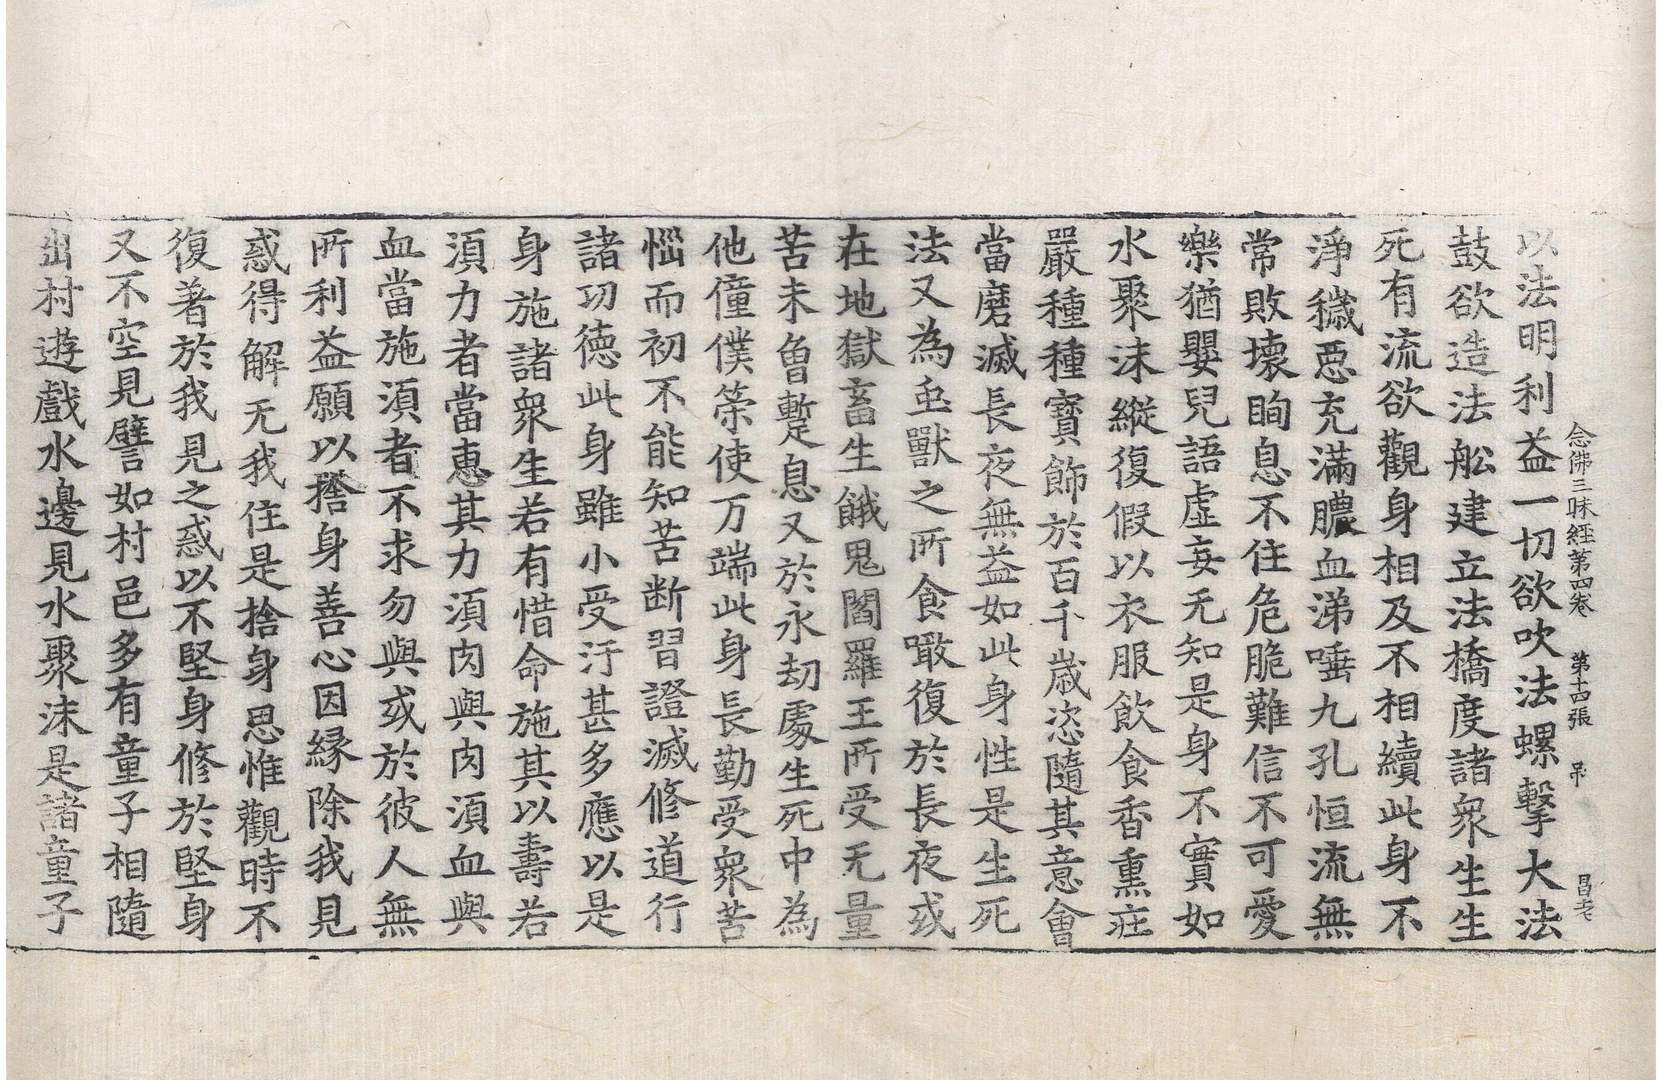 念佛三昧経第四卷 第十四張 吊 昌老
以法明利益一切欲吹法螺擊大法
鼓欲造法舩建立法橋度諸衆生生
死有流欲觀身相及不相續此身不
淨穢惡充滿膿血涕唾九孔恒流無
常敗壞眴息不住危脆難信不可愛
樂猶嬰兒語虛妄无知是身不實如
水聚沫縱復假以衣服飲食香熏莊
嚴種種寶飾於百千歲恣隨其意會
當磨滅長夜無益如此身性是生死
法又為虫獸之所食噉復於長夜或
在地獄畜生餓鬼閻羅王所受无量
苦未曾蹔息又於永劫處生死中為
他僮僕策使万端此身長勤受衆苦
惱而初不能知苦断習證滅修道行
諸功德此身雖小受汙甚多應以是
身施諸衆生若有惜命施其以壽若
湏力者當惠其力湏肉與肉湏血與
血當施湏者不求勿與或於彼人無
所利益願以捨身善心因緣除我見
惑得解无我住是捨身思惟觀時不
復著於我見之惑以不堅身修於堅身
又不空見譬如村邑多有童子相隨
出村遊戲水邊見水聚沫是諸童子